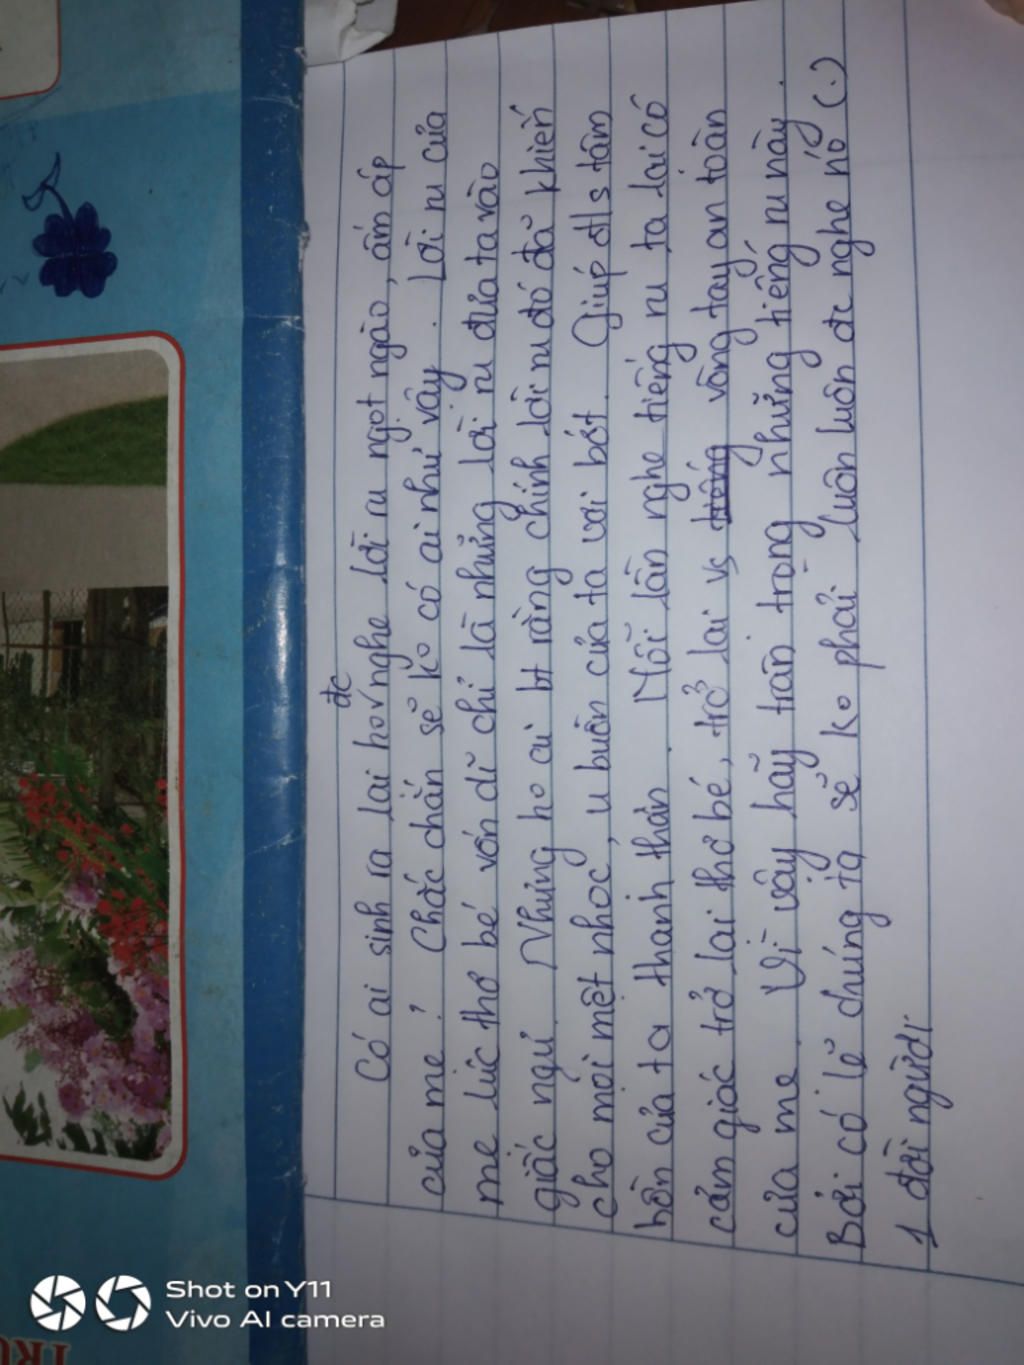 Có ai sinh ra lại ho nghe lời ru ngọt ngào, ấm áp
đc
của mẹ? Chắc chắn sẽ ko có ai như vậy. Lời ru của
mẹ lúc thơ bé vốn dĩ chỉ là những lời ru đưa ta vào
giấc ngủ. Nhưng ho ai bt rằng chính lời ru đó đã khiến
cho mọi mệt nhọc, u buồn của ta vơi bớt. Giúp đ/s tâm
hồn của ta thanh thản. Mỗi lần nghe tiếng ru ta lại có
cảm giác trở lại thơ bé, trở lại vs vòng tay an toàn
của mẹ. Vì vậy hãy trân trọng những tiếng ru này.
Bởi có lẽ chúng ta sẽ ko phải luôn luôn đc nghe nó (.)
1 đời người
Shot on Y11
Vivo AI camera